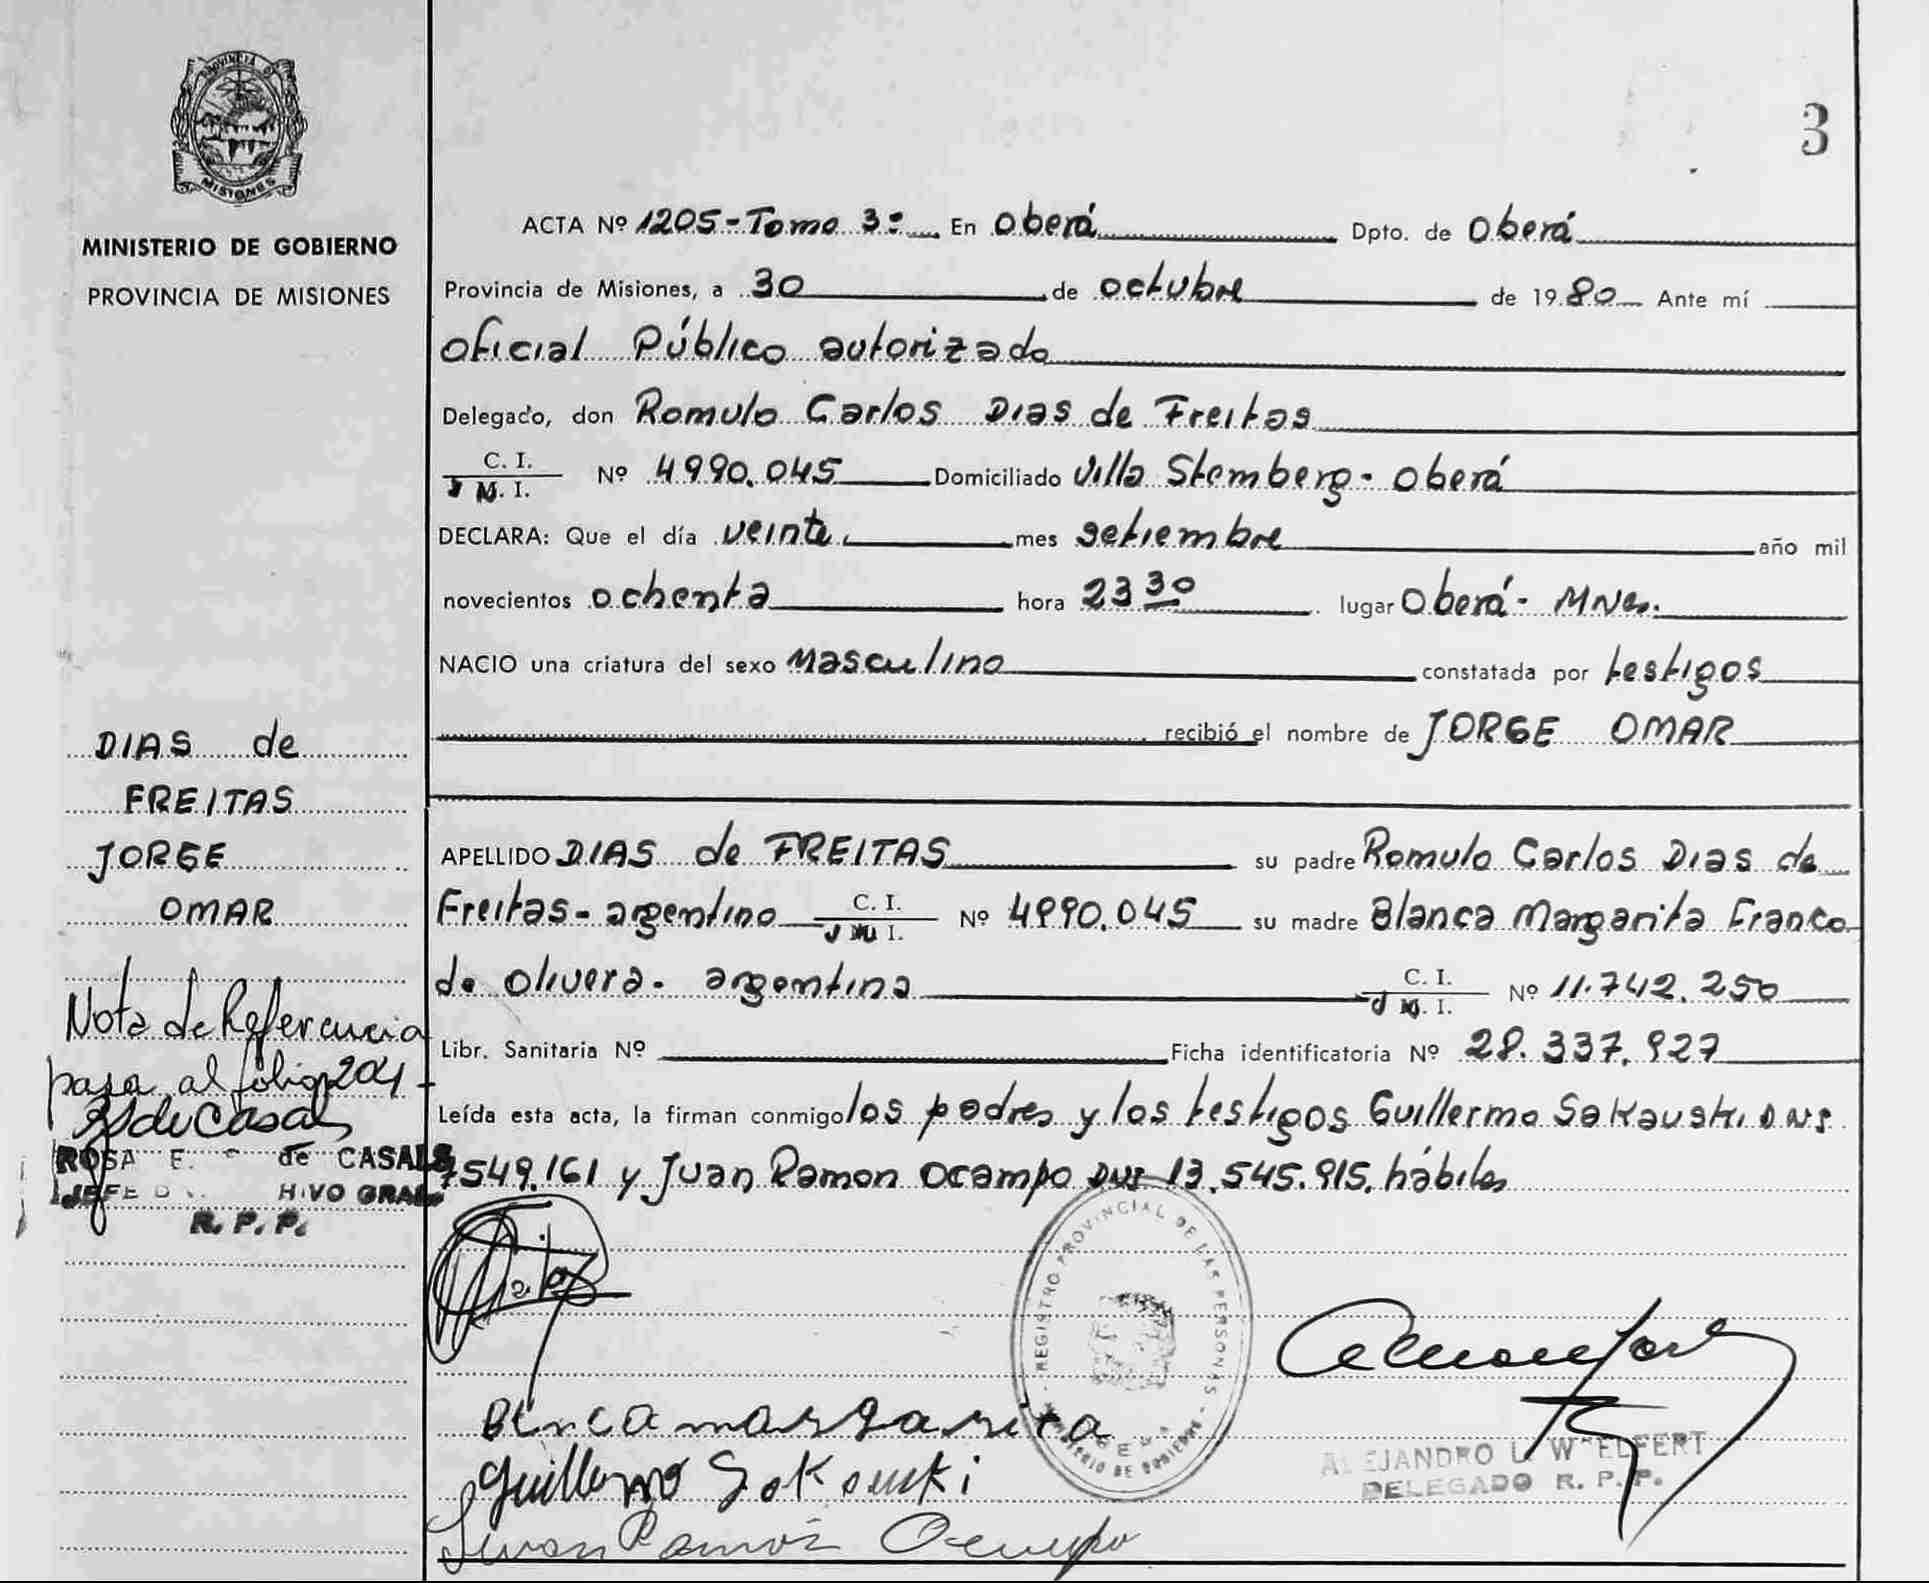 PROVINCIA DE
MISIONES
MINISTERIO DE GOBIERNO
PROVINCIA DE MISIONES
3
ACTA Nº 1205-Tomo 3º En Oberá Dpto. de Oberá
Provincia de Misiones, a 30 de octubre de 1980 Ante mí
oficial Público autorizado
Delegado, don Romulo Carlos Dias de Freitas
C. I.
M. I. Nº 4990.045 Domiciliado Villa Stemberg - Oberá
DECLARA: Que el día veinte mes setiembre año mil
novecientos ochenta hora 23 30 lugar Oberá - MNes.
NACIO una criatura del sexo Masculino constatada por testigos
recibió el nombre de JORGE OMAR
APELLIDO DIAS de FREITAS su padre Romulo Carlos Dias de
Freitas - argentino C. I. M. I. Nº 4990.045 su madre Blanca Margarita Franco
de Olivera - argentina C. I. M. I. Nº 11.742.250
Libr. Sanitaria Nº Ficha identificatoria Nº 28.337.927
Leída esta acta, la firman conmigo los padres y los testigos Guillermo Sakauski DNI
7549.161 y Juan Ramon Ocampo DNI 13.545.915. hábiles
DIAS de
FREITAS
JORGE
OMAR
Nota de Referencia
pasa al folio 204 -
de Casals
ROSA E. de CASALS
JEFE
R. P. P.
REGISTRO PROVINCIAL DE LAS PERSONAS
MINISTERIO DE GOBIERNO
Blnca margarita
Guillermo Sakouski
Juan Ramón Ocampo
ALEJANDRO
DELEGADO R. P. P.